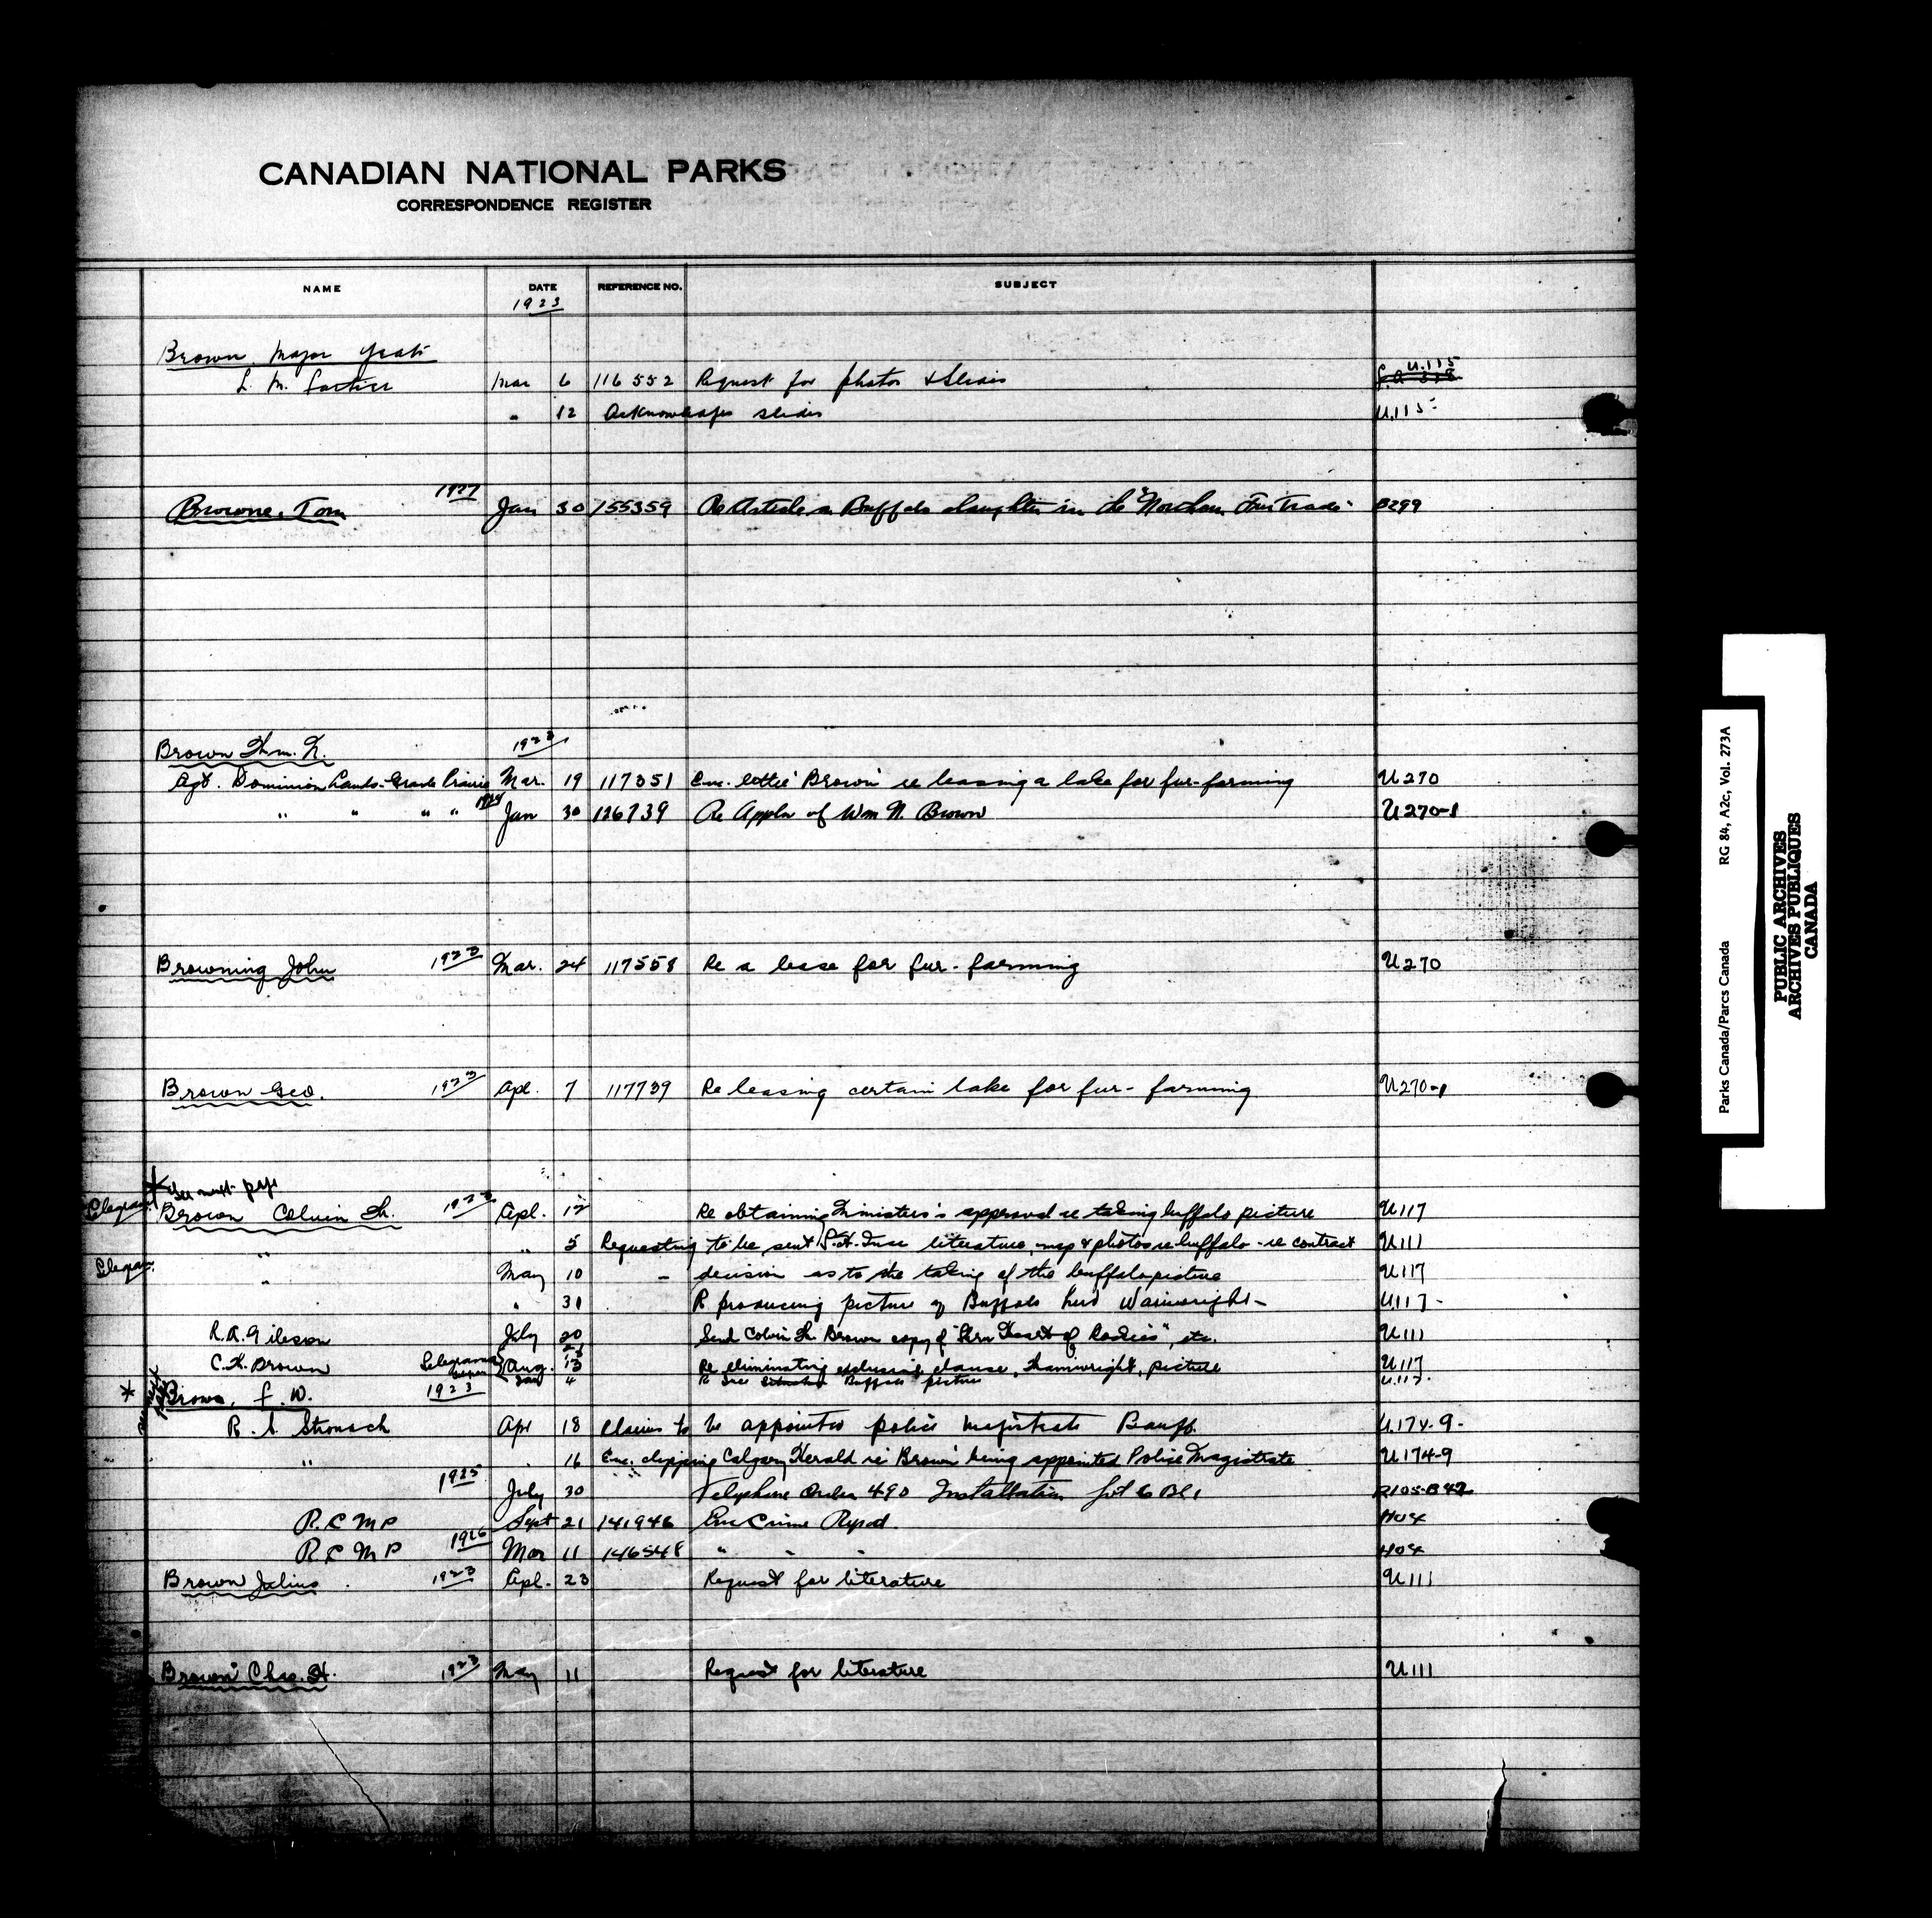 CANADIAN NATIONAL PARKS
CORRESPONDENCE REGISTER
NAME DATE REFERENCE NO. SUBJECT
1923
Brown, Major
L. M. Mar 6 116552 Request for photos & Slides U.115
" 12 Acknowledges slides U.115
Browne, Tom 1927 Jan 30 155359 Re Article on Buffalo slaughter in the "Northern Fur Trade" B299
Brown Wm. N. 1923
Agt. Dominion Lands - Grande Prairie Mar. 19 117351 Enc. letter 'Brown' re leasing a lake for fur-farming U270
" " " " 1924 Jan 30 126739 Re Appln of Wm N. Brown U270-1
Browning John 1923 Mar. 24 117558 Re a lease for fur-farming U270
Brown Geo. 1923 Apl. 7 117739 Re leasing certain lake for fur-farming U270-1
See next page
Telegram Brown Colvin W. 1923 Apl. 12 Re obtaining Minister's approval re taking buffalo picture U117
" " 5 Requesting to be sent literature, map & photos re buffalo - re contract U111
Telegram " May 10 - decision as to the taking of the buffalo picture U117
" 31 R producing picture of Buffalo herd Wainwright - U117-
R.A. Gibson July 20 Send Colvin W. Brown copy of " Heart of Rockies", etc. U111
C.W. Brown Telegrams Aug. 13 Re eliminating exclusive clause, Wainwright, picture U117
4 Buffalo picture U.117.
* Brown, J. W. 1923
R. S. Stronach Apr 18 Claims to be appointed police magistrate Banff. U.174-9-
" " 16 Enc. clipping Calgary Herald re 'Brown' being appointed Police Magistrate U174-9
1925 July 30 Telephone Order 490 Installation Lot 6 Bl 1
R.C.M.P. Sept 21 141946 Enc Crime Report
R.C.M.P. 1926 Mar 11 146548 " " "
Brown Julius 1923 Apl. 23 Request for literature U111
Brown Chas. H. 1923 May 11 Request for literature U111
Parks Canada/Parcs Canada RG 84, A2c, Vol. 273A
PUBLIC ARCHIVES
ARCHIVES PUBLIQUES
CANADA